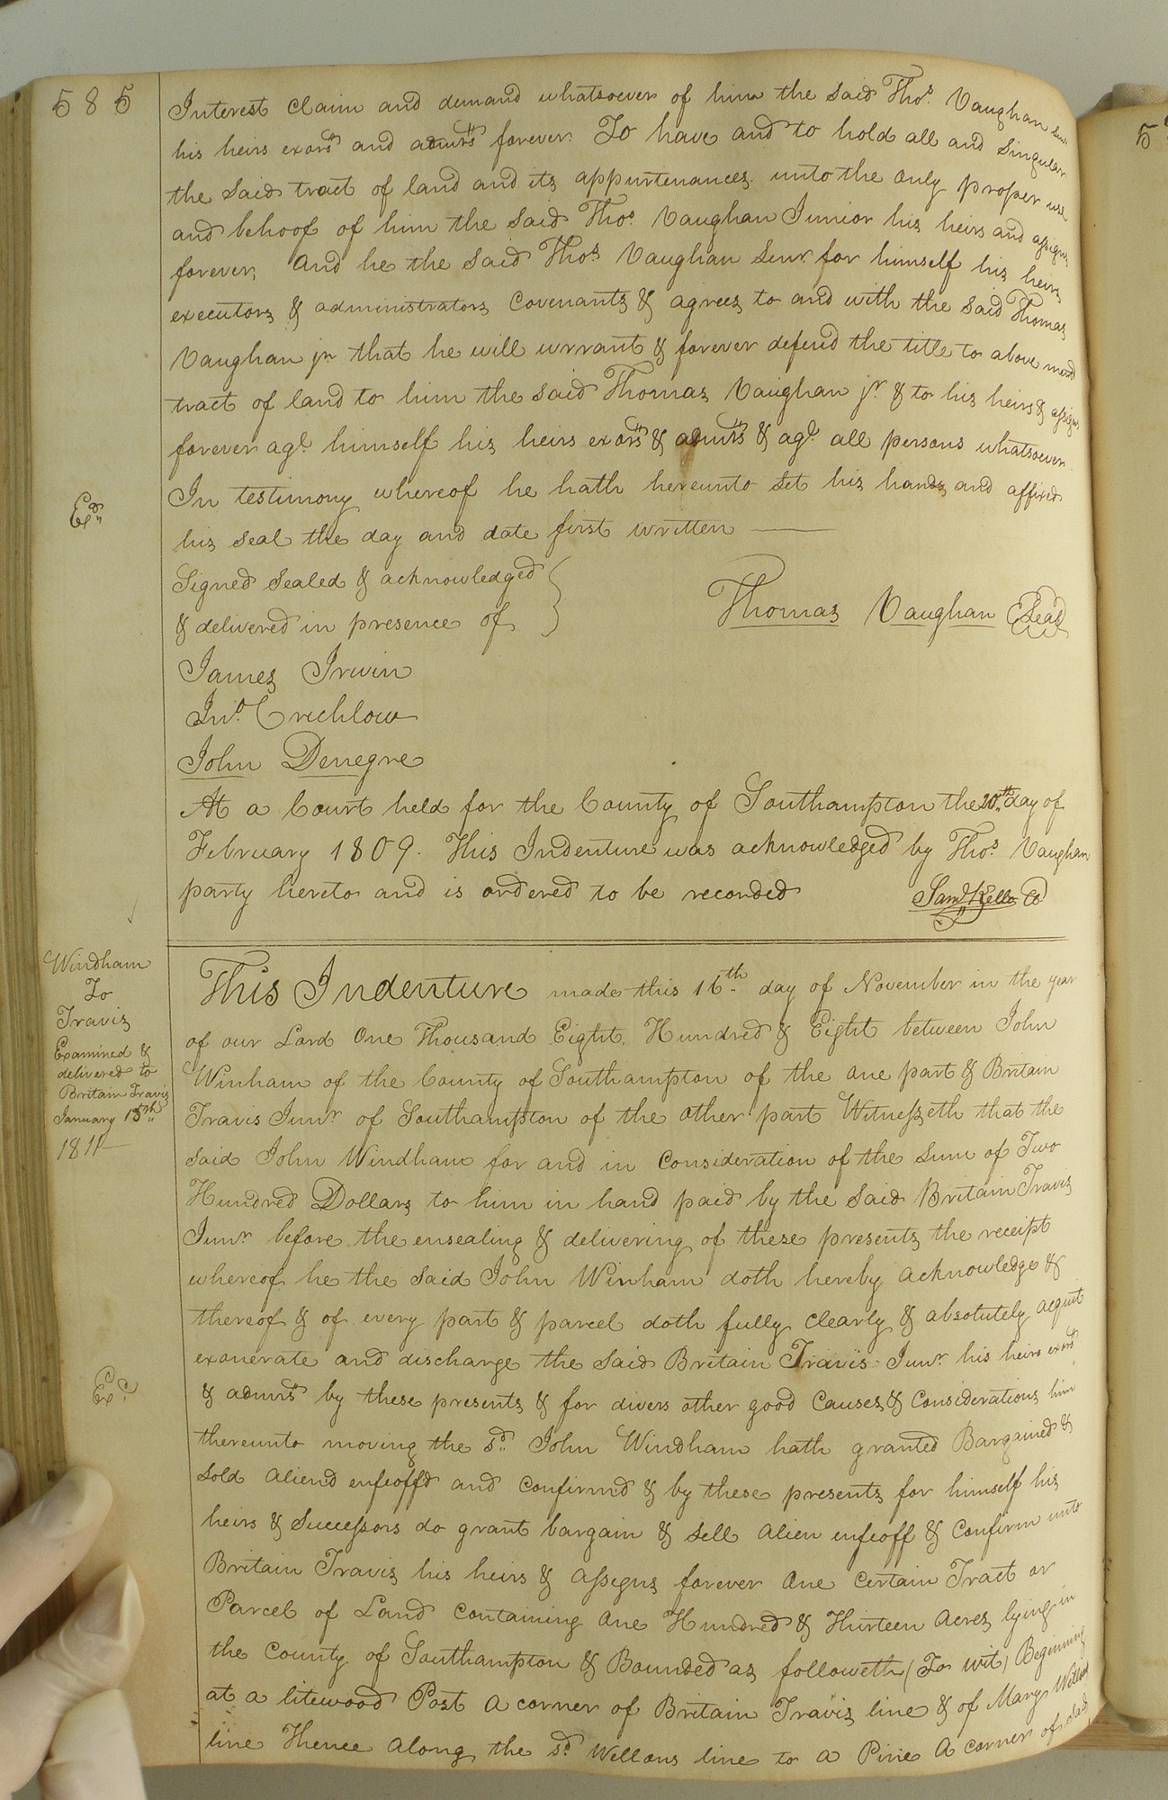 585
Interest claim and demand whatsoever of him the said Thos. Vaughan Senr
his heirs exors and admrs forever. To have and to hold all and singular
the said tract of land and its appurtenances unto the only proper use
and behoof of him the said Thos. Vaughan Junior his heirs and assigns
forever, and he the said Thos. Vaughan Senr for himself his heirs
executors & administrators covenants & agrees to and with the said Thomas
Vaughan jr that he will wrrant & forever defend the title to above mend
tract of land to him the said Thomas Vaughan jr. & to his heirs & assigns
forever agt. himself his heirs exors & admrs & agt. all persons whatsoever
In testimony whereof he hath hereunto set his hands and affixed
his seal the day and date first written
Exd
Signed Sealed & acknowledged
& delivered in presence of
Thomas Vaughan Seal
James Irwin
Jno. Crichlow
John Denegre
At a Court held for the County of Southampton the 20th day of
February 1809. This Indenture was acknowledged by Thos. Vaughan
party hereto and is ordered to be recorded
Saml. Kello CC
Windham
To
Travis
Examined &
delivered to
Britain Travis
January 15th
1811
This Indenture made this 16th day of November in the year
of our Lord One Thousand Eight Hundred & Eight between John
Winham of the County of Southampton of the one part & Britain
Travis Junr of Southampton of the other part Witnesseth that the
said John Windham for and in consideration of the sum of Two
Hundred Dollars to him in hand paid by the said Britain Travis
Junr before the ensealing & delivering of these presents the receipt
whereof he the said John Winham doth hereby acknowledge &
thereof & of every part & parcel doth fully clearly & absolutely acquit
exonerate and discharge the said Britain Travis Junr his heirs exors
& admrs by these presents & for divers other good causes & considerations him
thereunto moving the sd. John Windham hath granted Bargained &
sold aliend enfeoffd and confirmd & by these presents for himself his
heirs & Successors do grant bargain & sell alien enfeoff & confirm unto
Britain Travis his heirs & assigns forever one certain Tract or
Parcel of Land containing one Hundred & Thirteen acres lying in
the County of Southampton & Bounded as followeth (To wit) Beginning
at a litewood Post a corner of Britain Travis line & of Mary
line Thence along the sd. Wellons line to a Pine a corner of